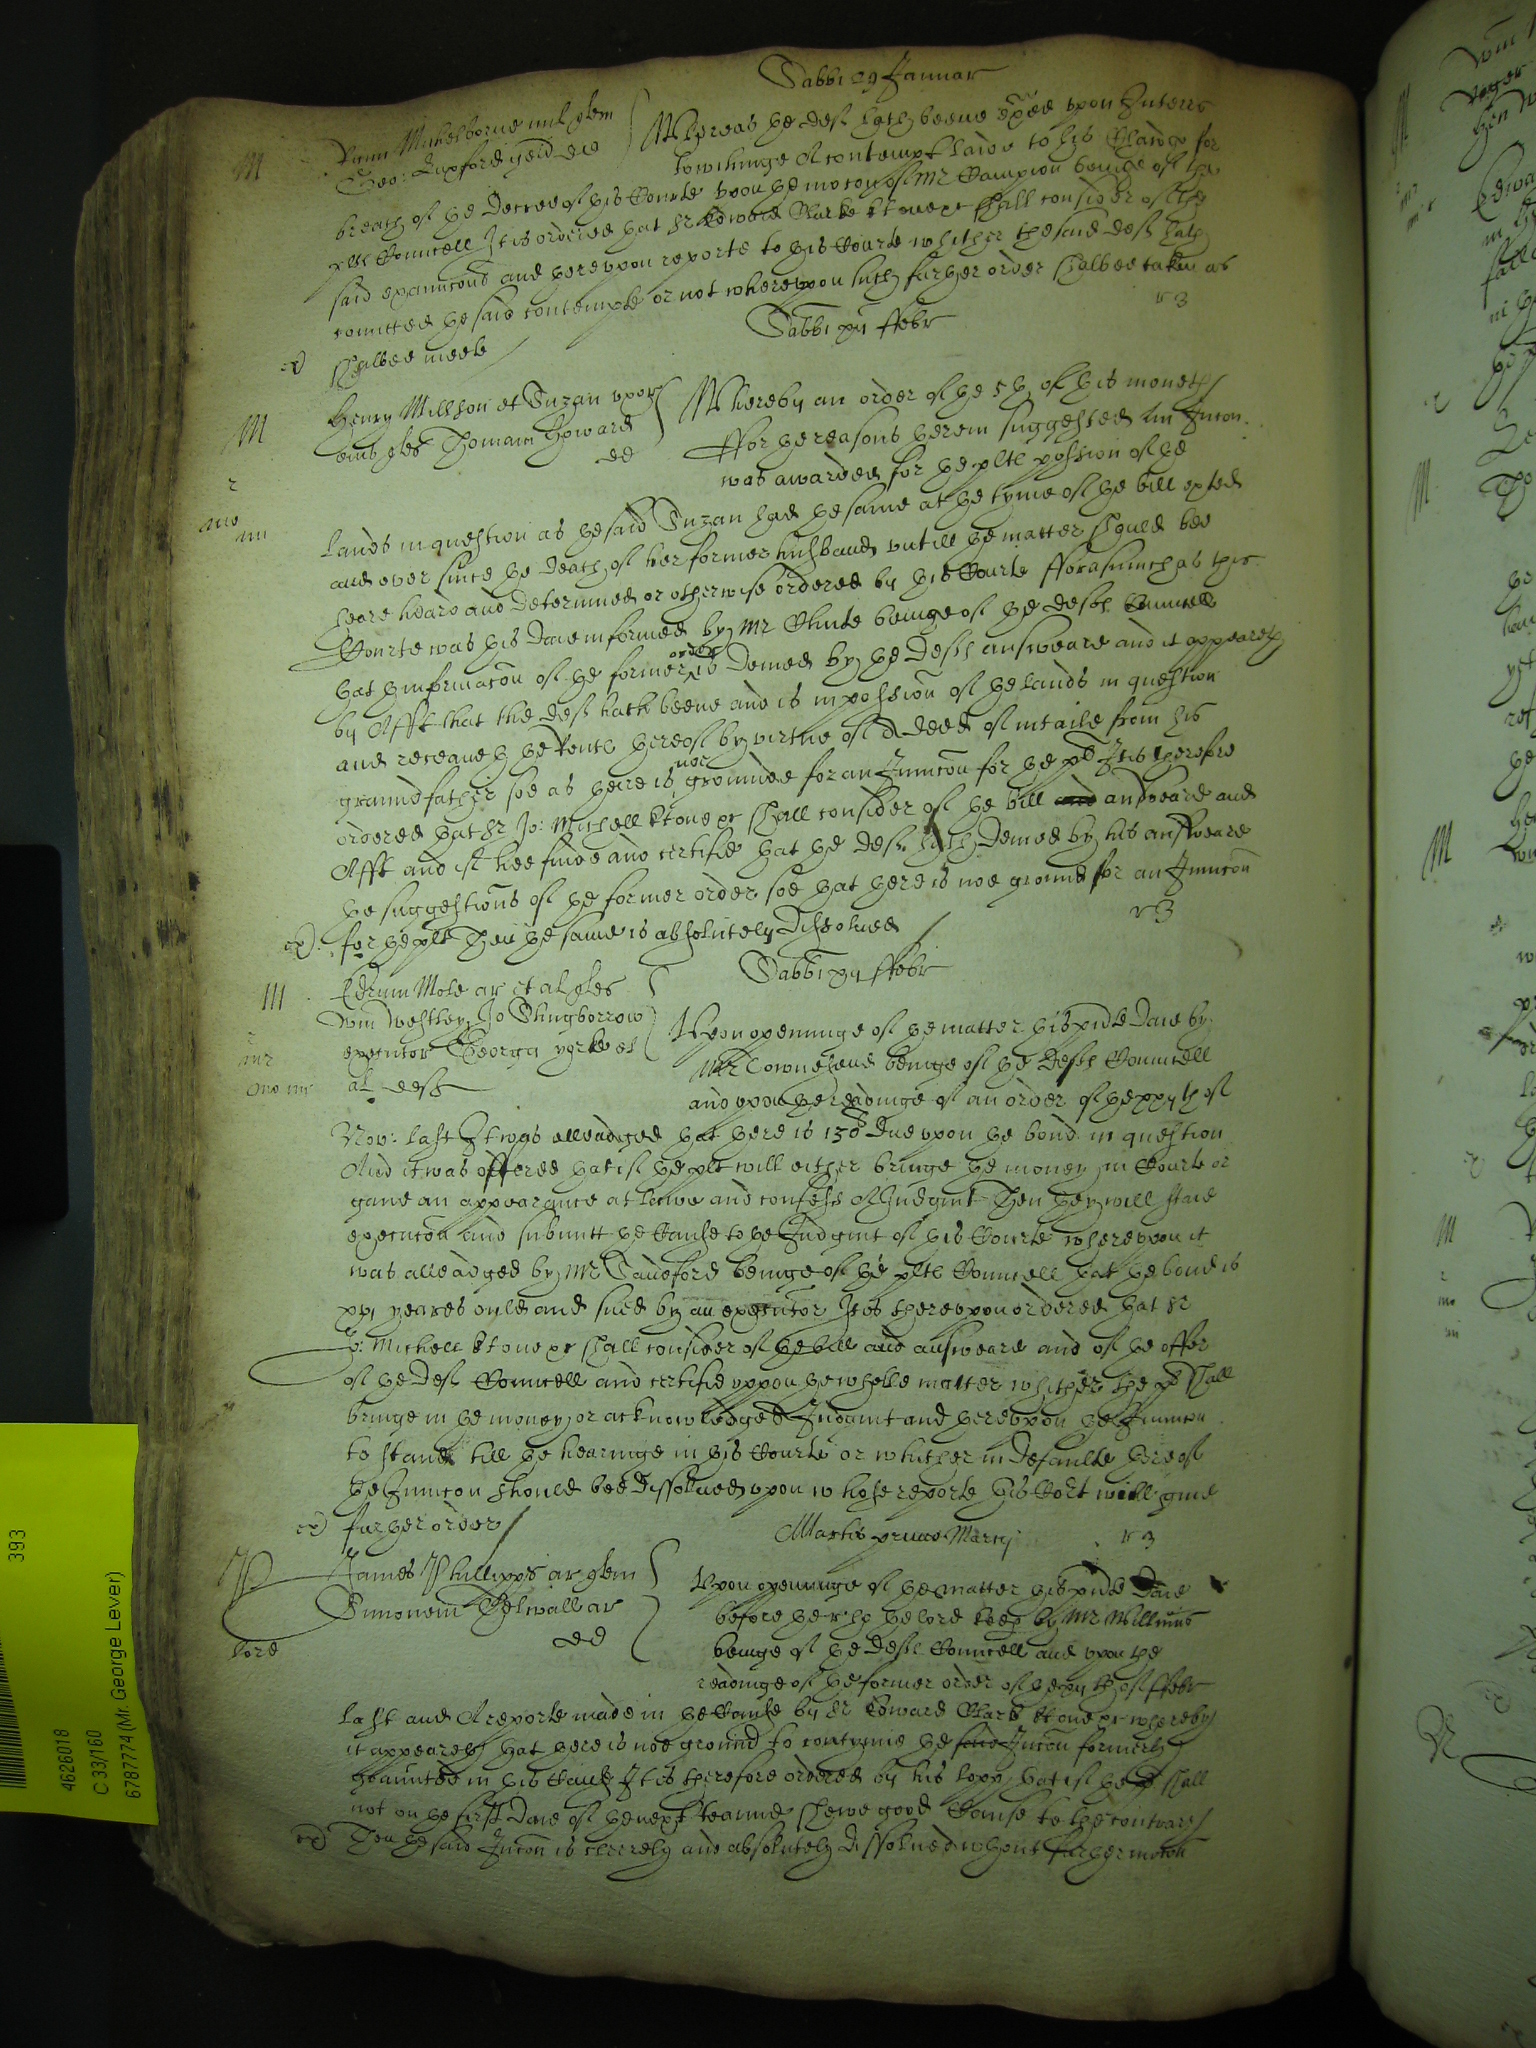 Sabbi 29 Januar
M
Michelborne mil quem
Geo: Luxford gen deft
Whereas ye deft hath beene exaied upon Interrs
towchinge A contempt laide to his Chardge for
breach of ye decree of this Courte Upon ye mocon of Mr Campion beinge of the
plts Councell It is ordered yat Sr Edward Clarke kt one &c shall consider of the
said examinacons and thereupon reporte to this Courte whither the said deft hath
comitted ye said contempte or not whereupon such further order shalbee taken as
shalbee meete
r 3
ex
Sabbi xii ffebr
M
Henry Willson et Suzan uxor
eius ples Thomam Howard
def
Whereby an order of ye 5th of this moneth
ffor ye reasons therein suggested an Iniuncon
was awarded for ye plts possion of ye
lands in question as ye said Suzan had ye same at ye tyme of ye bill exted
and ever since ye death of her former husband untill ye matter should bee
heare heard and determined or otherwise ordered by this Courte fforasmuch as this
Courte was this daie informed by Mr Chute beinge of ye defts Councell
yat informacon of ye former order is denied by ye defts answeare and it appeareth
by Afft that the deft hath beene and is in possession of ye lands in question
and receaveth ye Rents thereof by virtue of A deed of intaile from his
grandfather soe as there is noe grounde for an Iniuncon for ye plt It is therefore
ordered yat Sr Jo: Michell kt one &c shall consider of ye bill and answeare and
Afft and if hee finde and certifie yat ye deft hath denied by his answeare
ye suggestions of ye former order soe yat there is noe ground for an Iniuncon
for ye plt Then ye same is absolutely dissolved
r 3
ex
Sabbi xii ffebr
M
Edrum Mole ar et al ples
Wm Westley Jo Slingborrow
executor Georgii yorke et
al defts
Upon openinge of ye matter this pnte daie by
Mr Townshend beinge of ye defts Councell
and upon ye readinge of an order of ye xxvth of
Nov: last It was alleadged yat there is 130l due upon ye bond in question
And it was offered yat if ye plt will either bringe ye money in Courte or
gave an appearance at lawe and confesse A Iudgmt Then they will staie
execucon and submitt ye Cause to ye Iudgmt of this Courte whereupon it
was alleadged by Mr Sandford beinge of ye plts Councell yat ye bond is
xxi yeares oulde and sued by an executor It is thereupon ordered yat Sr
Jo: Michell kt one &c shall consider of ye bill and answeare and of ye offer
of ye defts Councell and certifie uppon ye wholle matter whither the plt shall
bringe in ye money or acknowledged Iudgmt and thereupon ye Iniuncon
to stand till ye hearinge in this Courte or whither in defaulte thereof
ye Iniuncon should bee dissolved upon whose reporte this Cort will give
further order
ex
r 3
Martis primo Marcij
P
James Phillipps ar quem
Simonem Thelwall ar
def
lord
Upon openinge of ye matter this pnte daie
before ye r: ho ye lord keep by Mr Williams
beinge of ye defts Councell and upon the
readinge of ye former order of ye xii th of ffebr
last and A reporte made in ye Cause by Sr Edward Clark kt one &c whereby
it appeareth yat there is noe ground to contynue ye said Iniuncon formerly
graunted in this Cause It is therefore ordered by his lopp yat if ye plt shall
not on ye first daie of ye next tearme shewe good Cause to the contrary
Then ye said Iniuncon is cleerely and absolutely dissolved without further mocon
ex
393
4626018
C 33/160
6787774 (Mr. George Lever)